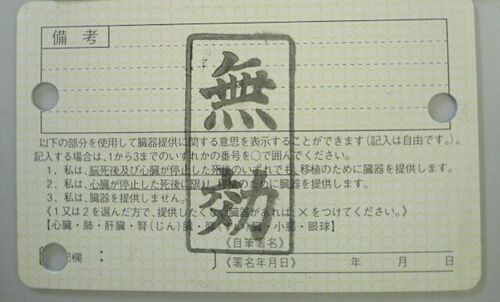 備考
無効
以下の部分を使用して臓器提供に関する意思を表示することができます(記入は自由です。)。
記入する場合は、1から3までのいずれかの番号を○で囲んでください。
1. 私は、脳死後及び心臓が停止した死後のいずれでも、移植のために臓器を提供します。
2. 私は、心臓が停止した死後に限り、移植のために臓器を提供します。
3. 私は、臓器を提供しません。
《1又は2を選んだ方で、提供したくない臓器があれば、×をつけてください。》
【心臓・肺・肝臓・腎(じん)臓・膵(すい)臓・小腸・眼球】
《自筆署名》
記欄:
《署名年月日》 年 月 日